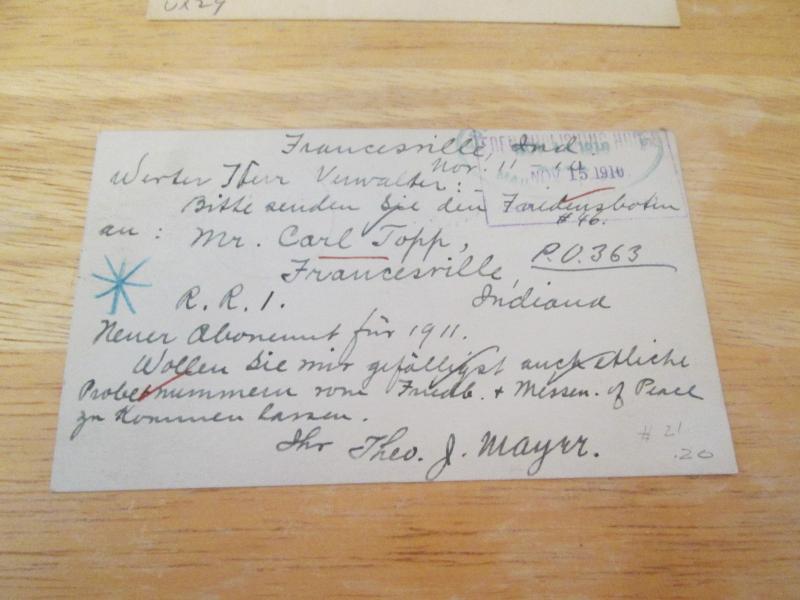 Francesville, Ind.
Nov. 11
NOV 15 1910.
Werter Herr Verwalter:
Bitte senden Sie den Friedensboten
#46.
an: Mr. Carl Topp,
P.O. 363
Francesville,
R. R. 1. Indiana
Neuer Abonemnt für 1911.
Wollen Sie mir gefälligst auch etliche
Probenummern vom Friedb. + Messen. of Peace
zu kommen lassen.
Ihr Theo. J. Mayer.
#21
.20